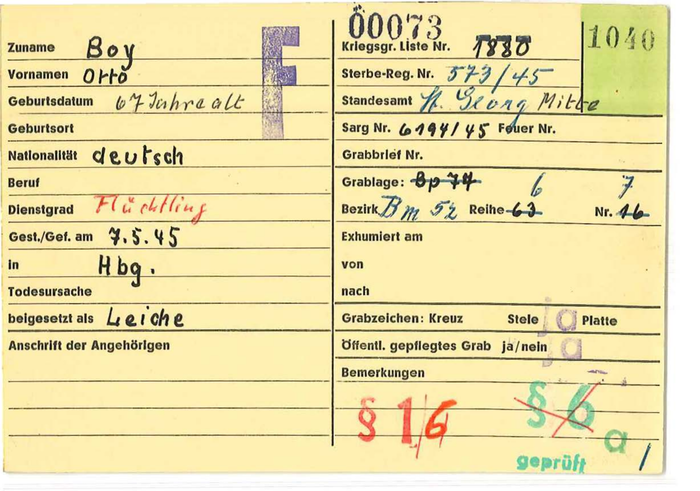 F
00073
1040
Zuname Boy
Vornamen Otto
Geburtsdatum 67 Jahre alt
Geburtsort
Nationalität deutsch
Beruf
Dienstgrad Flüchtling
Gest./Gef. am 7.5.45
in Hbg.
Todesursache
beigesetzt als Leiche
Anschrift der Angehörigen
Kriegsgr. Liste Nr. 1880
Sterbe-Reg. Nr. 573/45
Standesamt St. Georg Mitte
Sarg Nr. 6194/45 Feuer Nr.
Grabbrief Nr.
Grablage: Bp 74 6 7
Bezirk Bm 52 Reihe 63 Nr. 16
Exhumiert am
von
nach
Grabzeichen: Kreuz Stele ja Platte
Öffentl. gepflegtes Grab ja/nein ja
Bemerkungen
§ 1/6
§ 6
a
geprüft